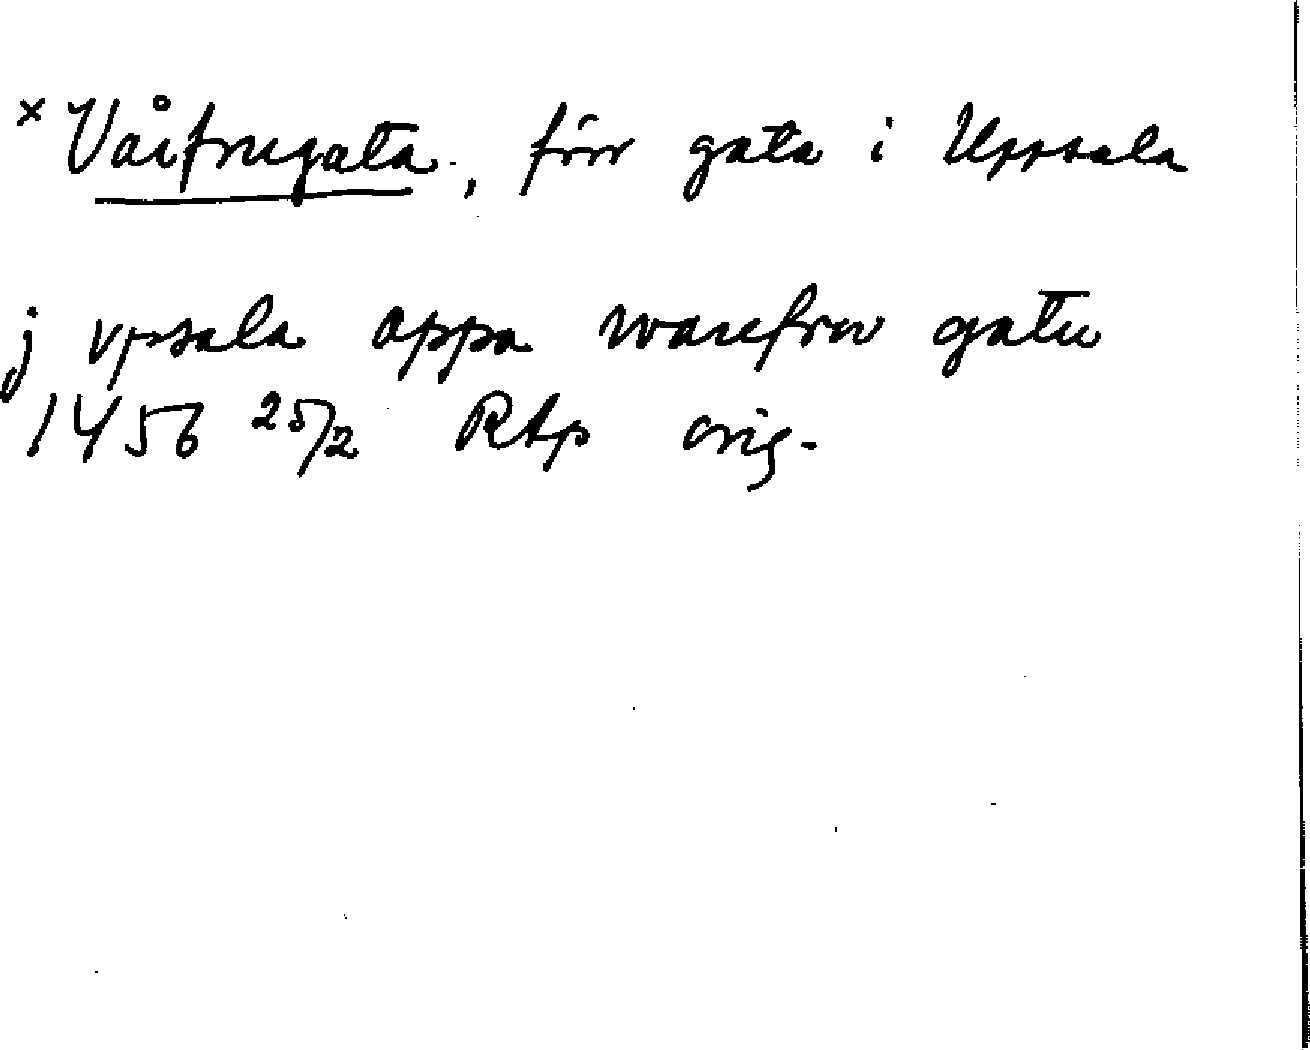 × Vårfrugata, förr gata i Uppsala
j vpsala oppa warefrw gatu
1456 25/2 RAp orig.